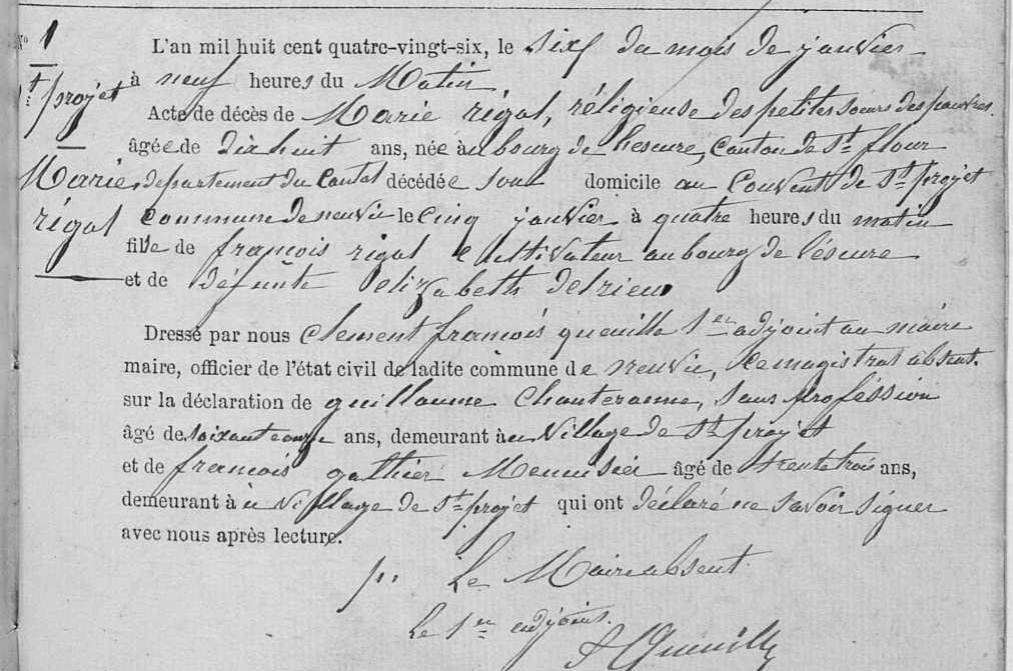 N° 1
St projet
Marie
rigal
L'an mil huit cent quatre-vingt-six, le six du mois de janvier
à neuf heures du Matin
Acte de décès de Marie rigal, réligieuse des petites sœurs des pauvres.
âgée de dix huit ans, née à au bourg de lescure, Canton de St flour
département du Cantal décédée son domicile au Couvent de St projet
Commune de neuvic le cinq janvier à quatre heures du matin
fille de françois rigal Cultivateur au bourg de léscure
et de défunte elizabeth delrieu
Dressé par nous Clement françois queuille 1er adjoint au maire
maire, officier de l'état civil de ladite commune de neuvic, ce magistrat absent.
sur la déclaration de guillaume Chanteranne, sans proféssion
âgé de soixante onze ans, demeurant à au Village de St projet
et de francois gathier Menuisier âgé de trente trois ans,
demeurant à u village de St projet qui ont déclaré ne savoir signer
avec nous après lecture.
p. Le Maire absent.
Le 1er adjoint.
Queuille